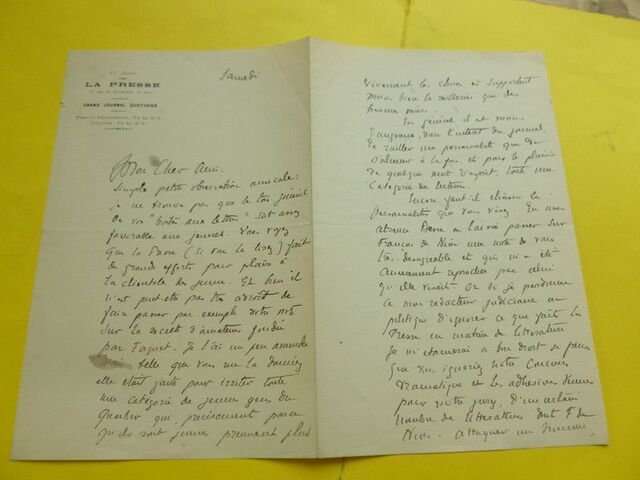 LA PRESSE
GRAND JOURNAL QUOTIDIEN
Samedi
Mon Cher Ami.
Simple petite observation amicale :
je ne trouve pas que le ton général
de vos "boîtes aux lettres" soit assez
favorable aux jeunes. Vous voyez
que la Presse (si vous la lisez) fait
de grands efforts pour plaire à
la clientèle des jeunes. Eh bien il
n'est peut-être pas très adroit de
faire passer par exemple votre note
sur la société d'amateurs fondée
par Faguet. Je l'ai un peu amendée
mais telle que vous me la donniez
elle était faite pour irriter toute
une catégorie de jeunes gens du
Quartier qui, précisément parce
qu'ils sont jeunes prennent plus
vivement les choses et supportent
moins bien la raillerie que des
hommes mûrs.
En général il est moins
dangereux, dans l'intérêt du journal,
de railler une personnalité que de
s'aliéner à la fois et pour le plaisir
de quelque mot d'esprit, toute une
catégorie de lecteurs.
Encore faut-il choisir les
personnalités que vous visez. En mon
absence on a laissé passer sur
François de Nion une note de vous
très désagréable et qui m'a été
amèrement reprochée par celui
qu'elle visait. Or si je pardonne
à mon rédacteur judiciaire ou
politique d'ignorer ce que fait la
Presse en matière de littérature
je m'étonnerai à bon droit je pense
que vous ignoriez notre Concours
dramatique et les adhésions venues
pour notre jury, d'un certain
nombre de littérateurs dont F. de
Nion. Attaquer un homme